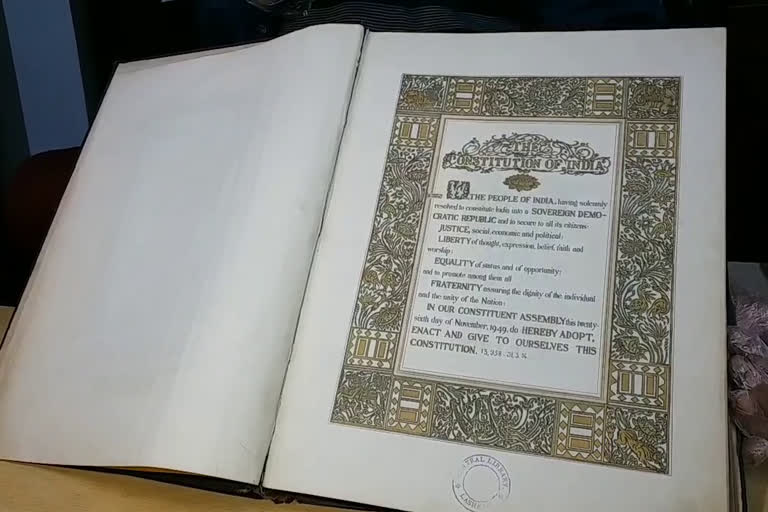 THE
CONSTITUTION OF INDIA
WE, THE PEOPLE OF INDIA, having solemnly
resolved to constitute India into a SOVEREIGN DEMO-
CRATIC REPUBLIC and to secure to all its citizens:
JUSTICE, social, economic and political;
LIBERTY of thought, expression, belief, faith and
worship;
EQUALITY of status and of opportunity;
and to promote among them all
FRATERNITY assuring the dignity of the individual
and the unity of the Nation;
IN OUR CONSTITUENT ASSEMBLY this twenty-
sixth day of November, 1949, do HEREBY ADOPT,
ENACT AND GIVE TO OURSELVES THIS
CONSTITUTION.
CENTRAL LIBRARY